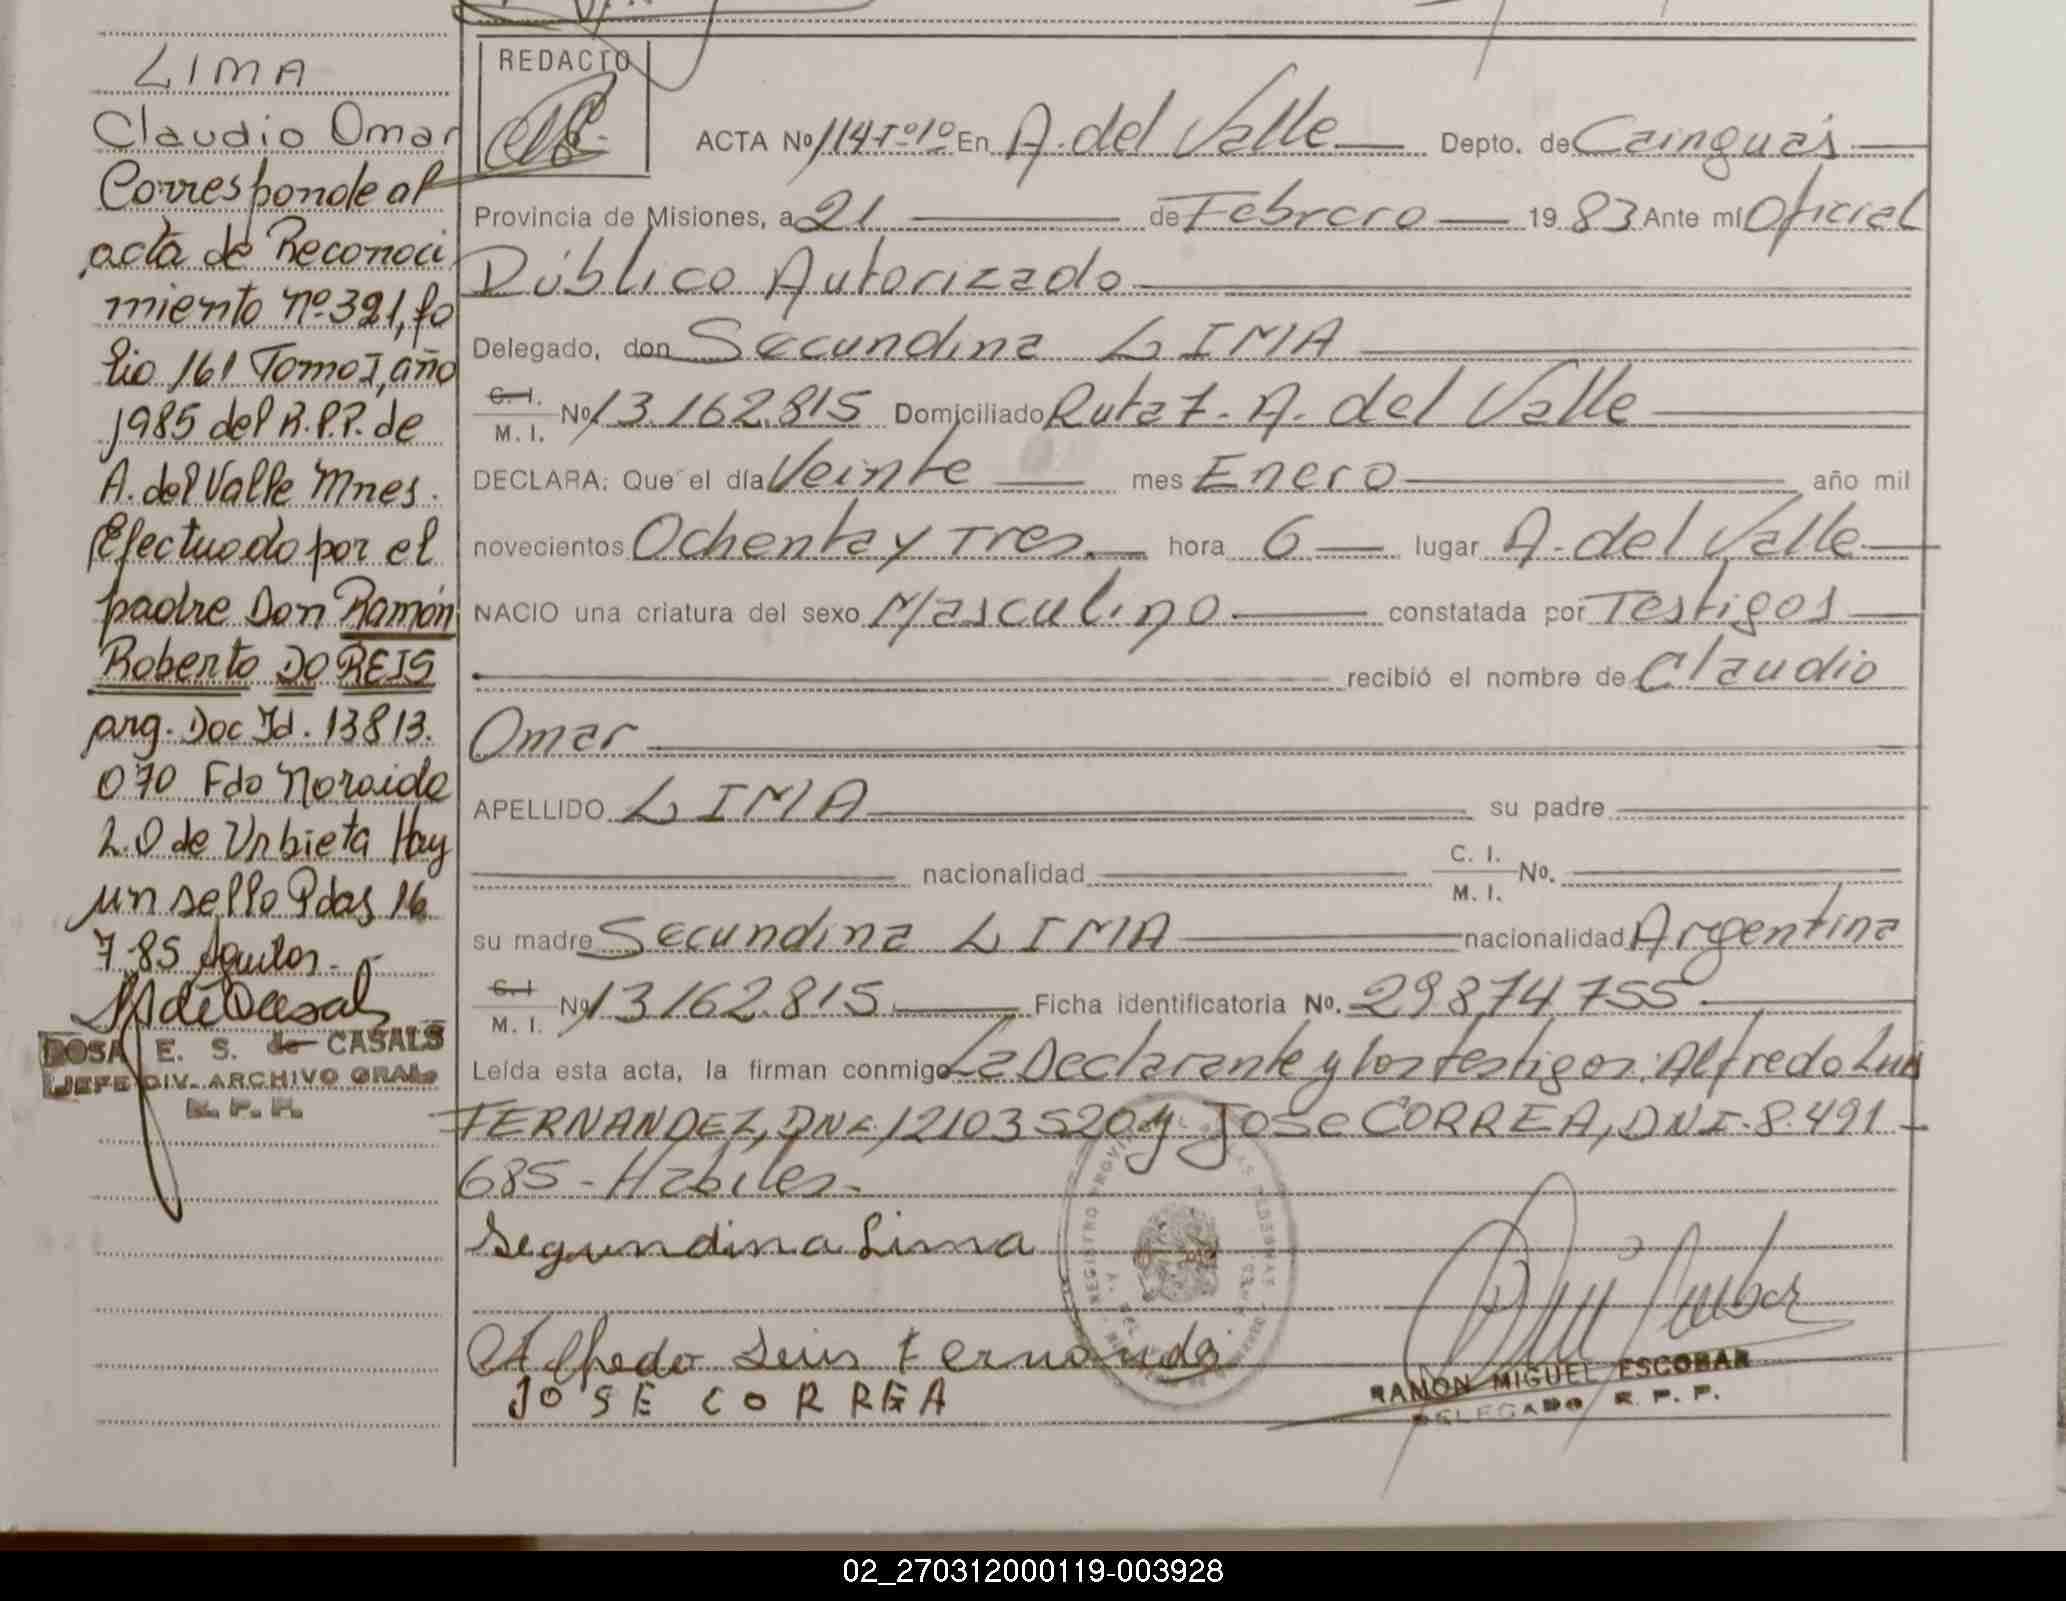 LIMA
Claudio Omar
Corresponde al
acta de Reconoci
miento nº 321, fo
lio 161 Tomo I, año
1985 del R.P.P. de
A. del Valle Mnes.
Efectuado por el
padre Don Ramón
Roberto DO REIS
arg. Doc Id. 13813.
070 Fdo Noraida
L.O de Urbieta Hay
un sello Pdas 16
7.85
E. S. de CASALS
JEFE DIV. ARCHIVO GRAL
R. P. P.
REDACTO
ACTA Nº 114 Tº 1º En A. del Valle Depto. de Cainguás
Provincia de Misiones, a 21 de Febrero 1983 Ante mí Oficial
Público Autorizado
Delegado, don Secundina LIMA
C. I.
M. I. Nº 13.162.815 Domiciliado Ruta 7. A. del Valle
DECLARA: Que el día Veinte mes Enero año mil
novecientos Ochenta y Tres hora 6 lugar A. del Valle
NACIO una criatura del sexo Masculino constatada por Testigos
recibió el nombre de Claudio
Omar
APELLIDO LIMA su padre
nacionalidad C. I.
M. I. Nº.
su madre Secundina LIMA nacionalidad Argentina
C. I
M. I. Nº 13162.815 Ficha identificatoria Nº. 29874.755
Leída esta acta, la firman conmigo La Declarante y los testigos: Alfredo Luis
FERNANDEZ, DNI. 12103520 y Jose CORREA, DNI. 8.491
685 - Habiles.
Segundina Lima
Alfredo Luis Fernande
JOSE CORREA
RAMON MIGUEL ESCOBAR
DELEGADO R. P. P.
02_270312000119-003928